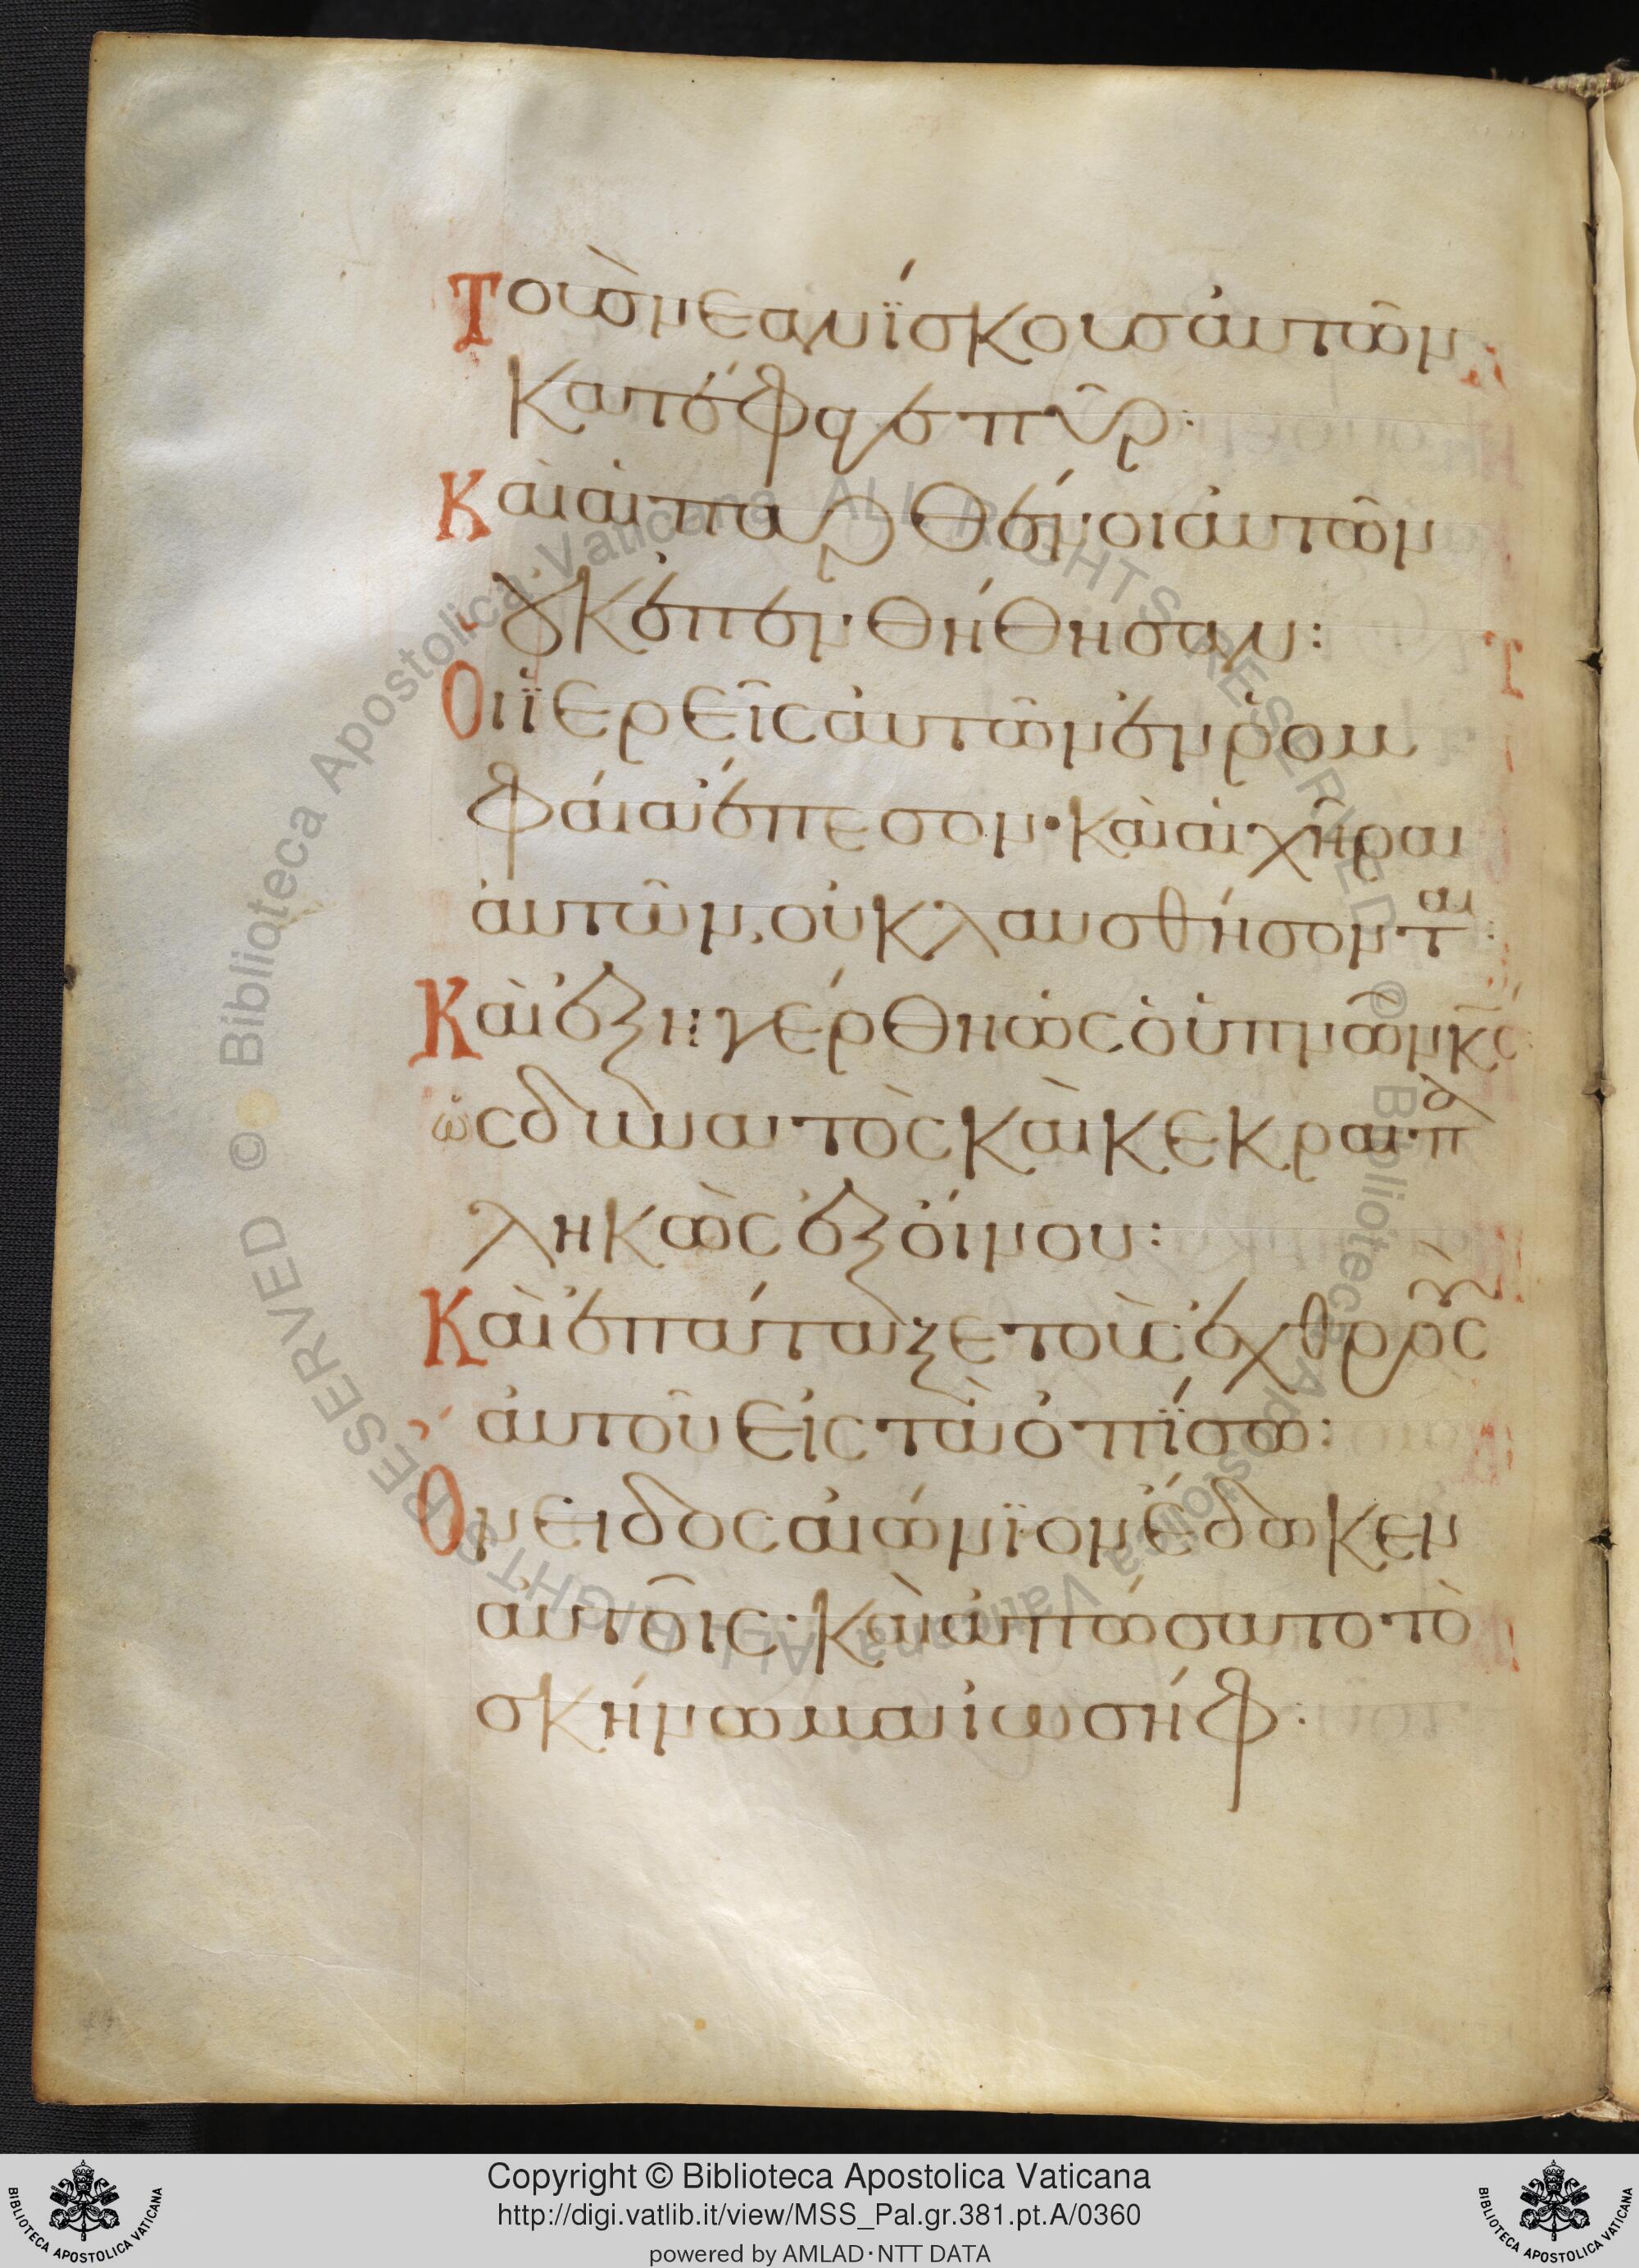 Τοὺς νεανΐσκους ἀυτῶν
κατέφαγε πῦρ:
Καὶ αἱ παρθένοι ἀυτῶν
οὐκ ἐπενθήθησαν:
Οι ϊερεῖς ἀυτῶν ἐν ῥομ
φάια ἔπεσον· καὶ αἱ χῆραι
ἀυτῶν, οὐ κλαυσθήσονται:
Καὶ ἐξηγέρθη ὡς ὁ ὑπνῶν κ̅ς̅
ὡς δυνατὸς καὶ κεκραιπα
ληκὼς ἐξ ὀίνου:
Καὶ ἐπάταξε τοὺς ἐχθροὺς
ἀυτοῦ εἰς τὰ ὀπΐσω:
Ονειδος αἰώνϊον ἔδωκεν
ἀυτοῖς· καὶ ἀπώσατο τὸ
σκήνωμα ἰωσήφ:
© Biblioteca Apostolica Vaticana ALL RIGHTS RESERVED © Biblioteca Apostolica Vaticana ALL RIGHTS RESERVED
Copyright © Biblioteca Apostolica Vaticana
http://digi.vatlib.it/view/MSS_Pal.gr.381.pt.A/0360
powered by AMLAD·NTT DATA
BIBLIOTECA APOSTOLICA VATICANA
BIBLIOTECA APOSTOLICA VATICANA